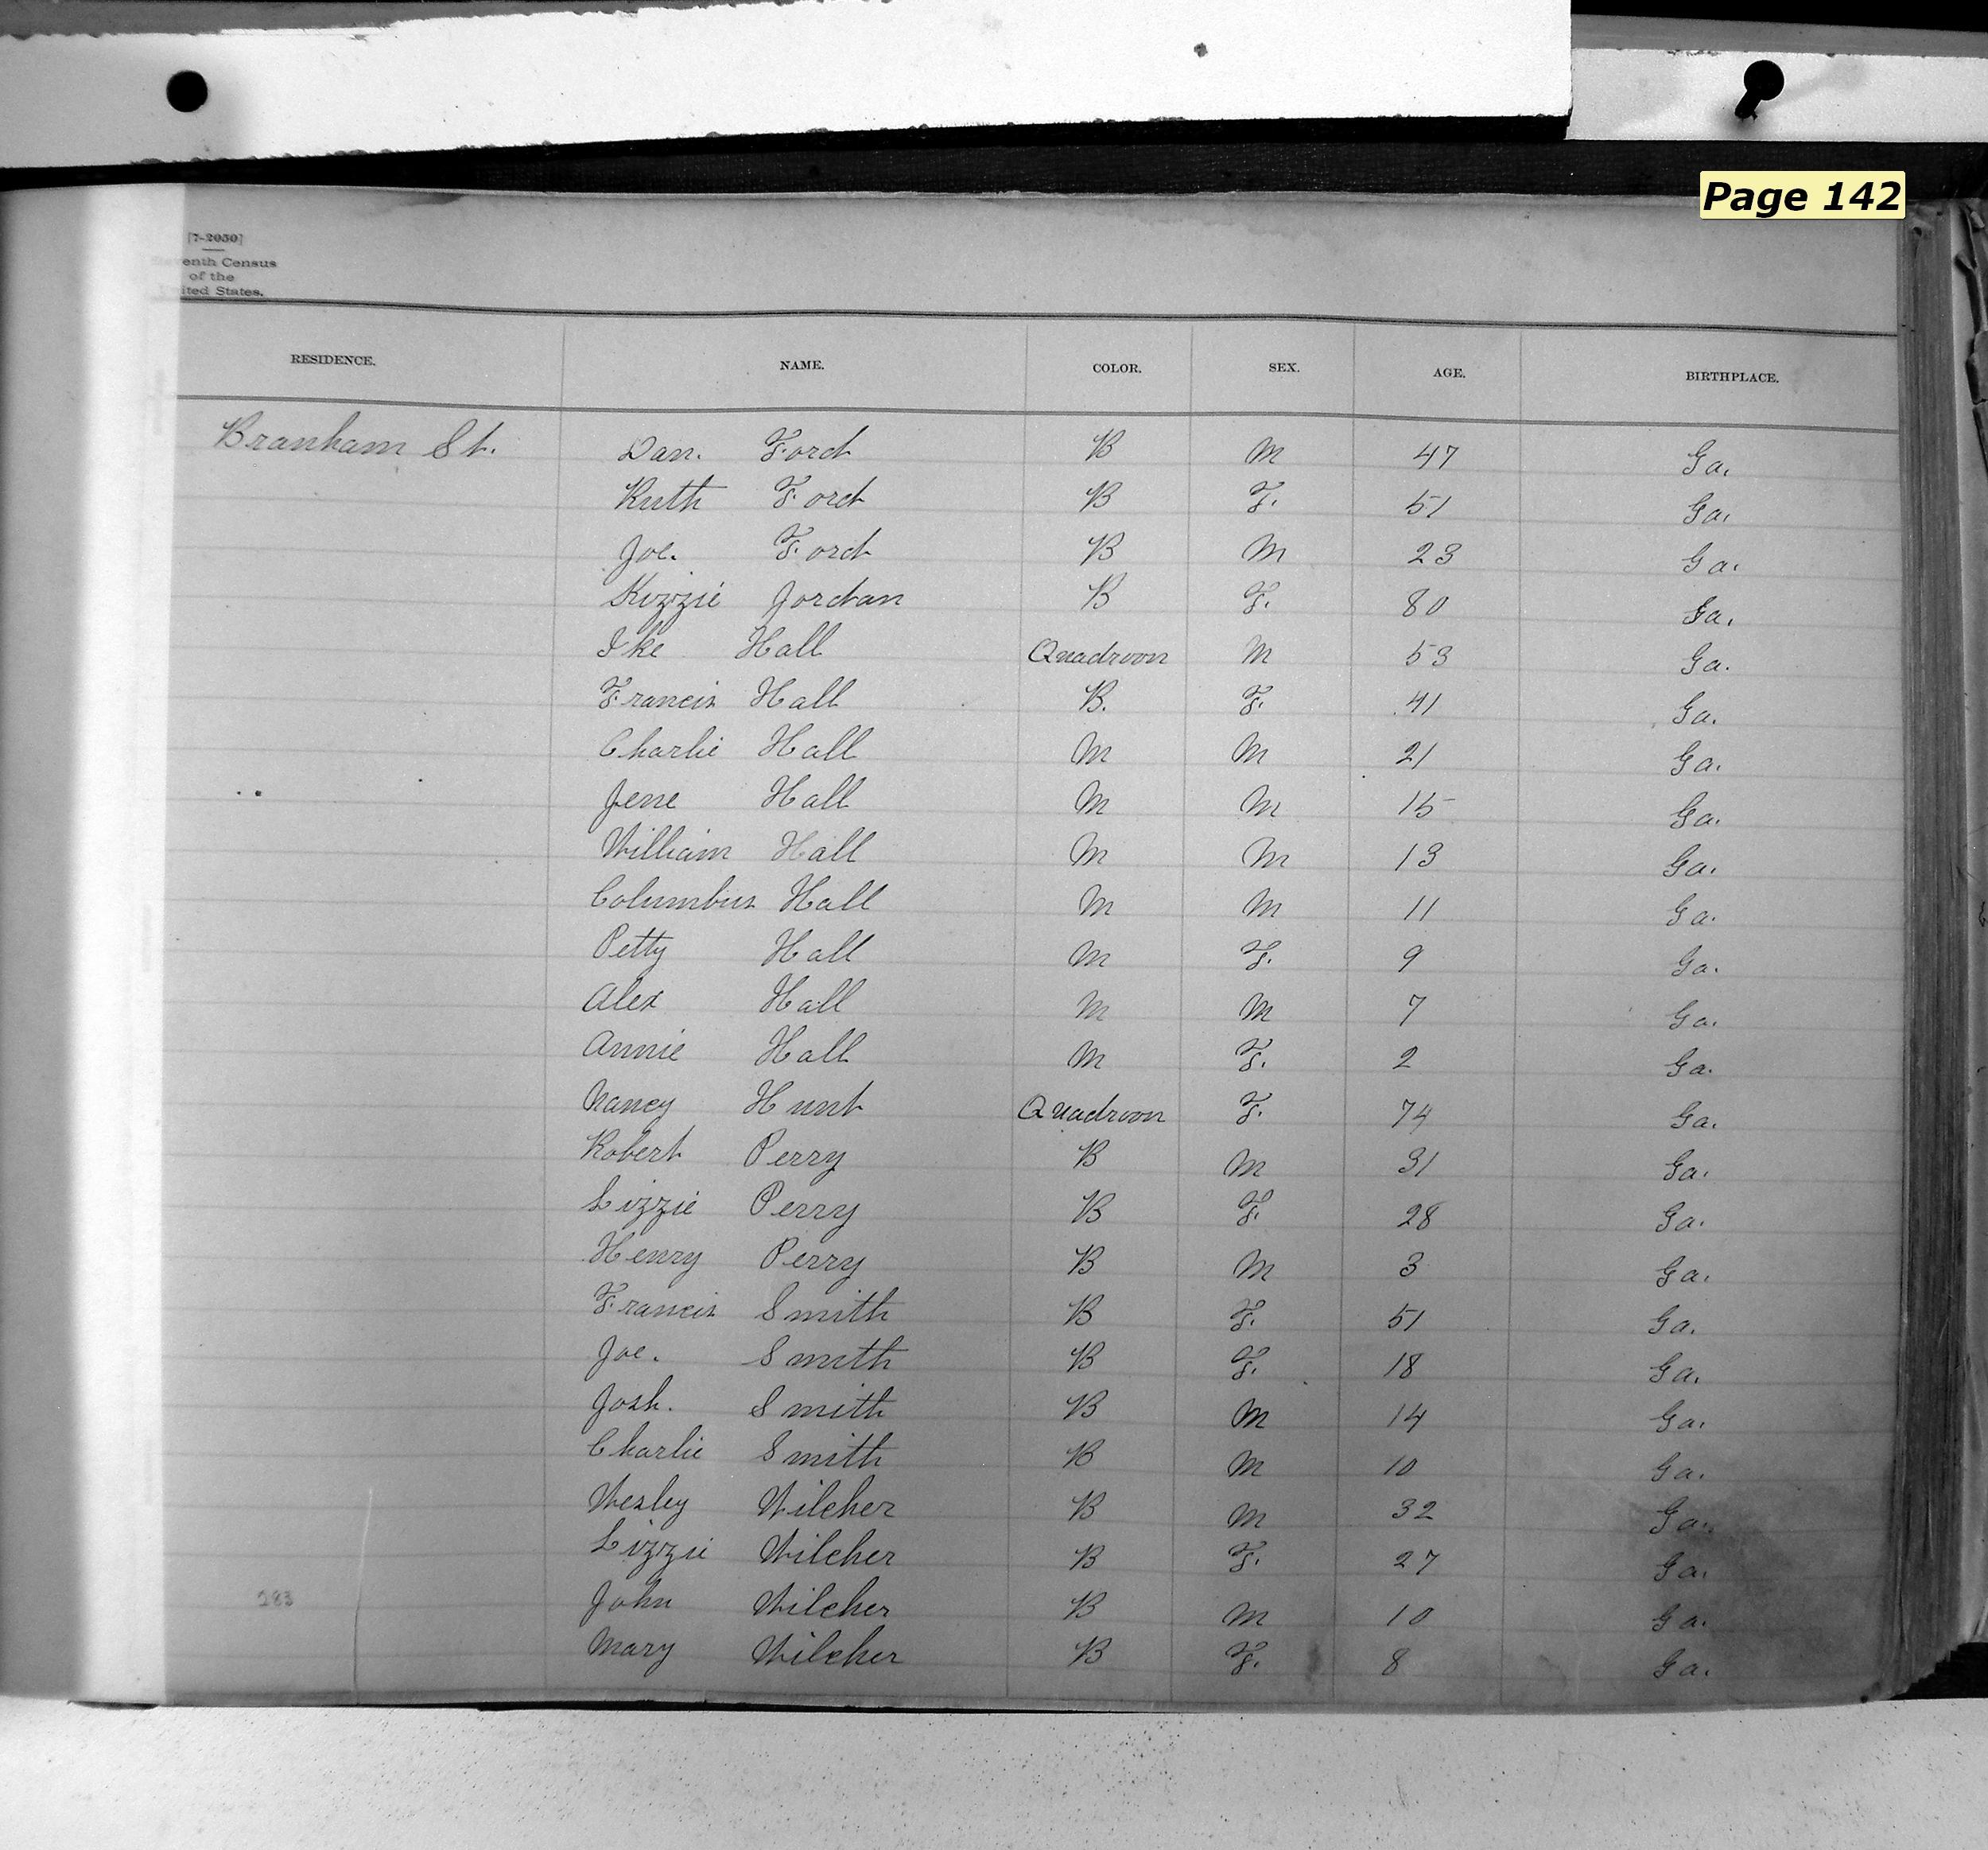 Page 142
[7-2050]
enth Census
of the
ited States.
RESIDENCE. NAME. COLOR. SEX. AGE. BIRTHPLACE.
Branham St. Dan. Ford B M 47 Ga.
Ruth Ford B F. 51 Ga.
Joe. Ford B M 23 Ga.
Kizzie Jordan B F. 80 Ga.
Ike Hall Quadroon M 53 Ga.
Francis Hall B. F. 41 Ga.
Charlie Hall M M 21 Ga.
Jene Hall M M 15 Ga.
William Hall M M 13 Ga.
Columbus Hall M M 11 Ga.
Petty Hall M F. 9 Ga.
Alex Hall M M 7 Ga.
Annie Hall M F. 2 Ga.
Nancy Hunt Quadroon F. 74 Ga.
Robert Perry B M 31 Ga.
Lizzie Perry B F. 28 Ga.
Henry Perry B M 3 Ga.
Francis Smith B F. 51 Ga.
Joe. Smith B F. 18 Ga.
Josh. Smith B M 14 Ga.
Charlie Smith B M 10 Ga.
Wesley Wilcher B M 32 Ga.
Lizzie Wilcher B F. 27 Ga.
283 John Wilcher B M 10 Ga.
Mary Wilcher B F. 8 Ga.